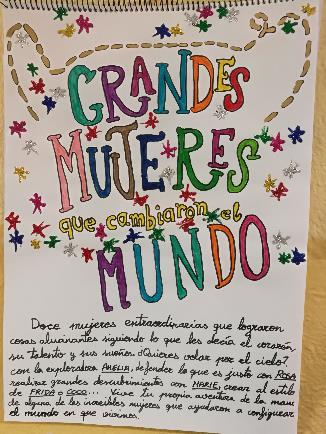 GRANDES
MUJERES
que cambiaron el
MUNDO
Doce mujeres extraordinarias que lograron
cosas alucinantes siguiendo lo que les decía el corazón,
su talento y sus sueños. ¿Quieres volar por el cielo?
con la exploradora AMELIA, defender lo que es justo con ROSA
realizar grandes descubrimientos con MARIE, crear al estilo
de FRIDA o COCO... Vive tu propia aventura de la mano
de alguna de las increíbles mujeres que ayudaron a configurar
el mundo en que vivimos.